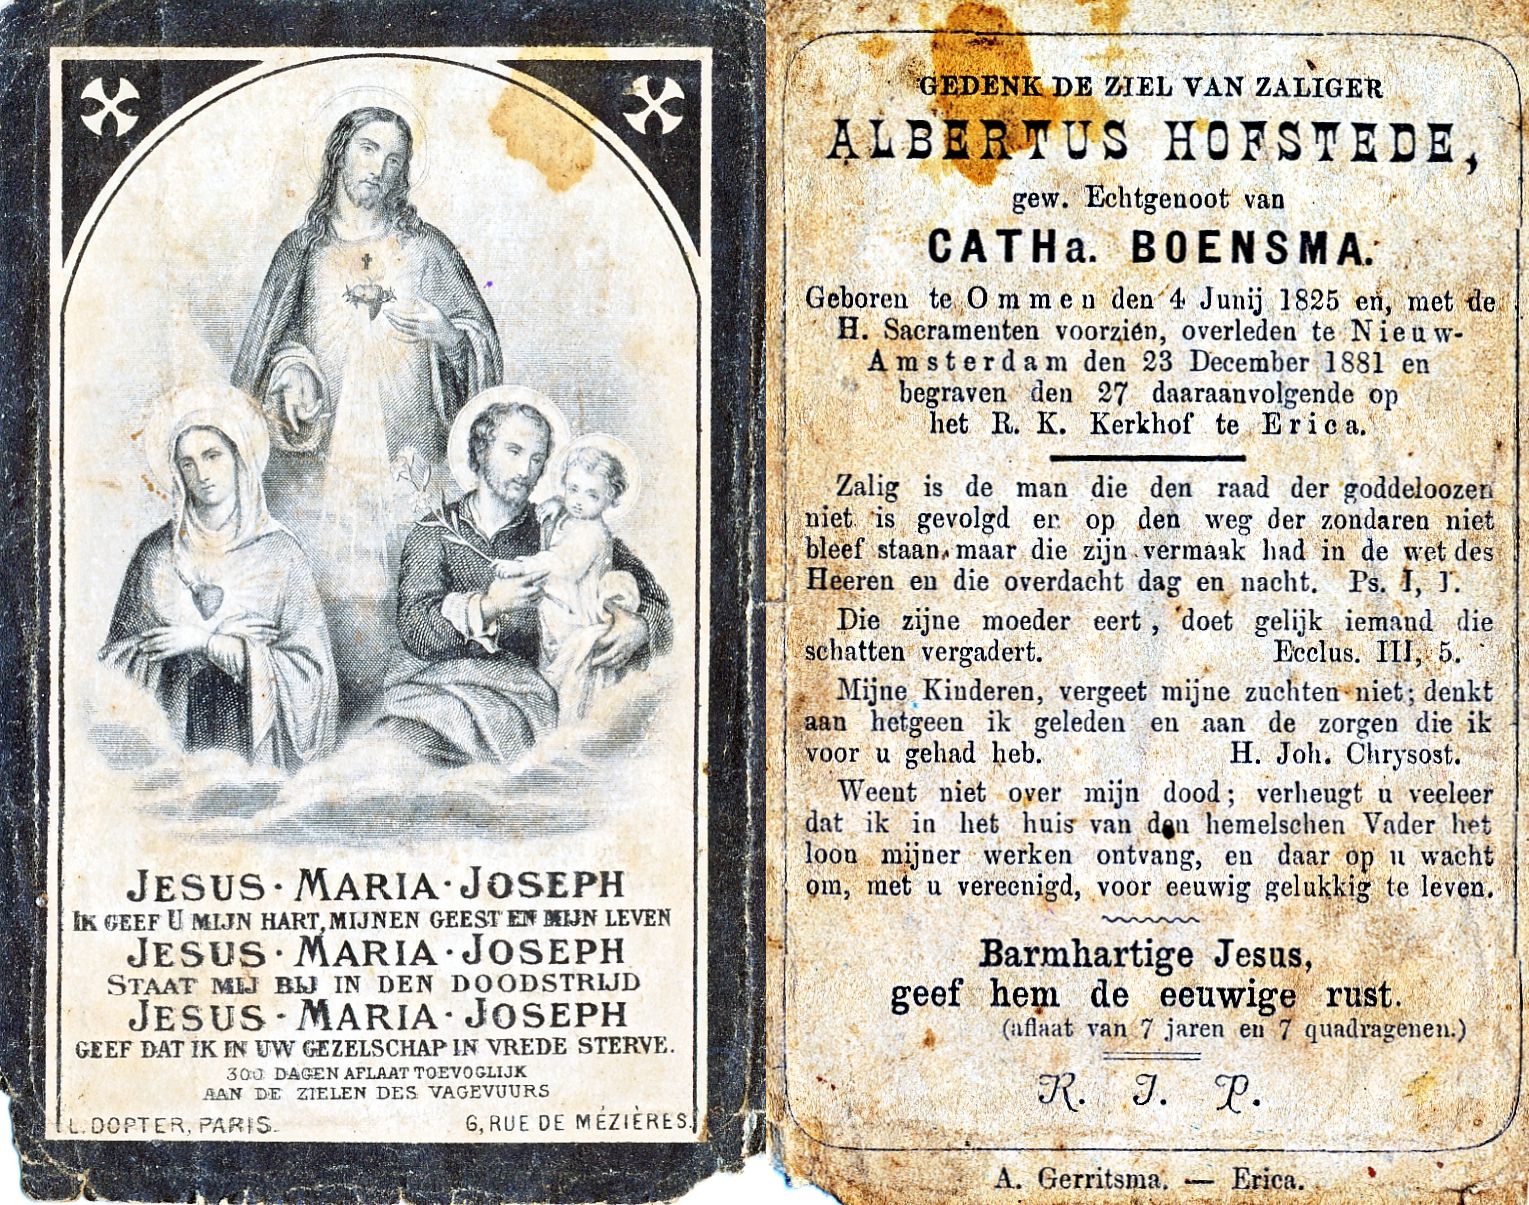 JESUS · MARIA · JOSEPH
IK GEEF U MIJN HART, MIJNEN GEEST EN MIJN LEVEN
JESUS · MARIA · JOSEPH
STAAT MIJ BIJ IN DEN DOODSTRIJD
JESUS · MARIA · JOSEPH
GEEF DAT IK IN UW GEZELSCHAP IN VREDE STERVE.
300 DAGEN AFLAAT TOEVOGLIJK
AAN DE ZIELEN DES VAGEVUURS
L. DOPTER, PARIS. 6, RUE DE MÉZIÈRES.
GEDENK DE ZIEL VAN ZALIGER
ALBERTUS HOFSTEDE,
gew. Echtgenoot van
CATHa. BOENSMA.
Geboren te Ommen den 4 Junij 1825 en, met de
H. Sacramenten voorzien, overleden te Nieuw-
Amsterdam den 23 December 1881 en
begraven den 27 daaraanvolgende op
het R. K. Kerkhof te Erica.
Zalig is de man die den raad der goddeloozen
niet is gevolgd en op den weg der zondaren niet
bleef staan, maar die zijn vermaak had in de wet des
Heeren en die overdacht dag en nacht. Ps. I, 1.
Die zijne moeder eert, doet gelijk iemand die
schatten vergadert. Ecclus. III, 5.
Mijne Kinderen, vergeet mijne zuchten niet; denkt
aan hetgeen ik geleden en aan de zorgen die ik
voor u gehad heb. H. Joh. Chrysost.
Weent niet over mijn dood; verheugt u veeleer
dat ik in het huis van den hemelschen Vader het
loon mijner werken ontvang, en daar op u wacht
om, met u vereenigd, voor eeuwig gelukkig te leven.
Barmhartige Jesus,
geef hem de eeuwige rust.
(aflaat van 7 jaren en 7 quadragenen.)
R. I. P.
A. Gerritsma. — Erica.